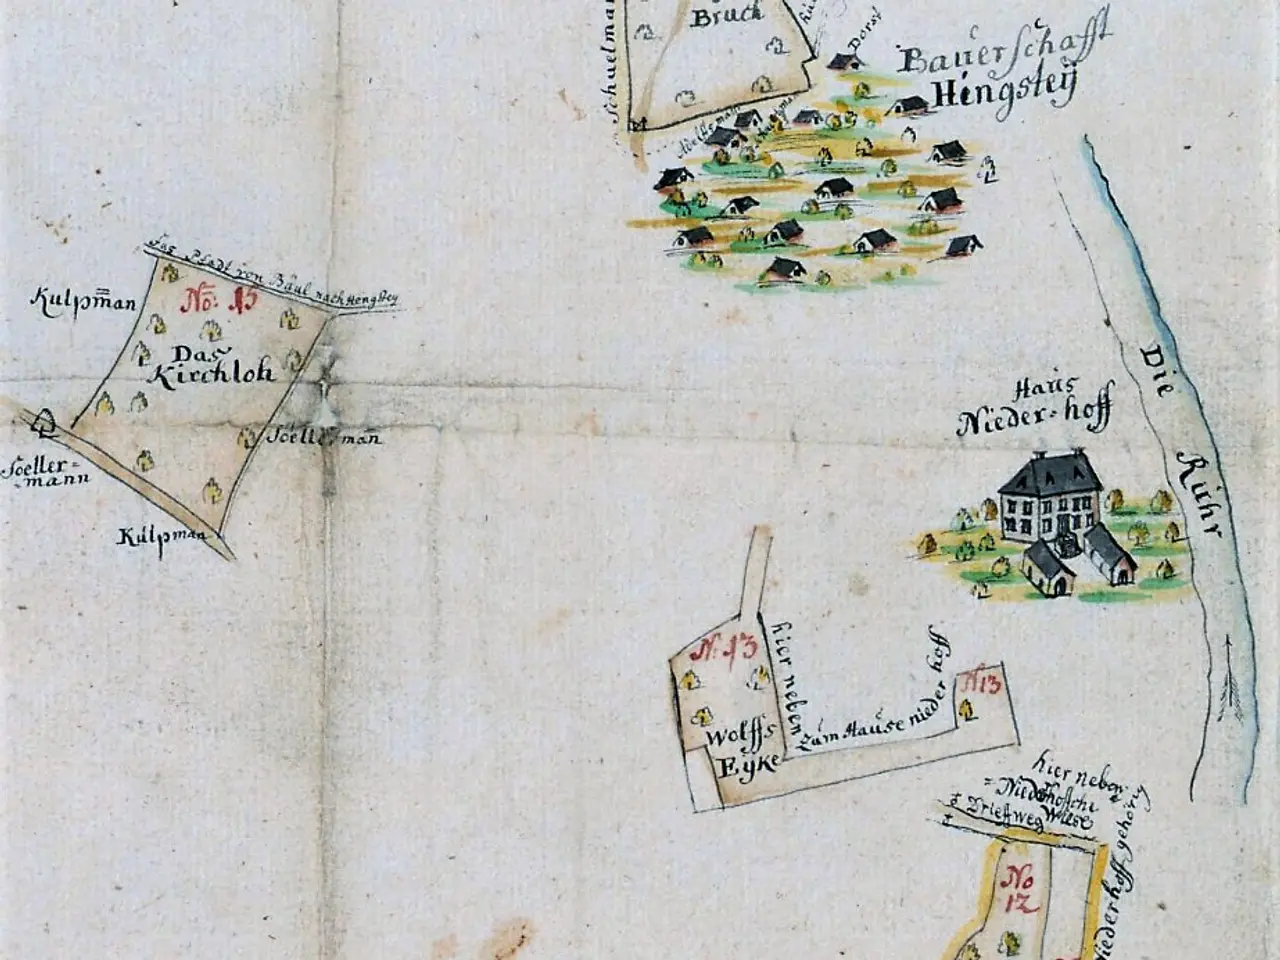 Bruch
Dorst
Schuelman
Bauerschafft
Hengsteÿ
Adolffs mann
Das Pfadt von Bäul nach Hengsteÿ
Kulpman
No: 15
Das
Kirchloh
Soellerman
Soeller=
=mann
Kulpman
Haus
Nieder=hoff
Die Ruhr
N: 13
Wolffs
Eÿke
hier neben
zum Hause nieder hoff
N 13
hier neben
=Niederhoffsche
Wiese
Drieffweg
Niederhoff gehörig
No
12